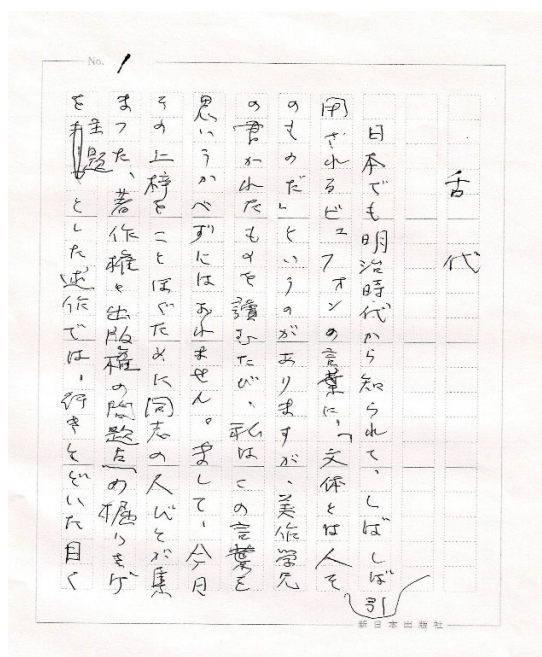 No. 1
舌代
日本でも明治時代から知られて、しばしば引
用されるビュフォンの言葉に、「文体とは人そ
のものだ」というのがありますが、美作学兄
の書かれたものを讀むたび、私はこの言葉を
思いうかべずにはおれません。まして、今日
その上梓をことほぐために同志の人びとが集
まった、著作権や出版権の問題点の掘りさげ
を主題とした述作では、行きとどいた目く
新日本出版社